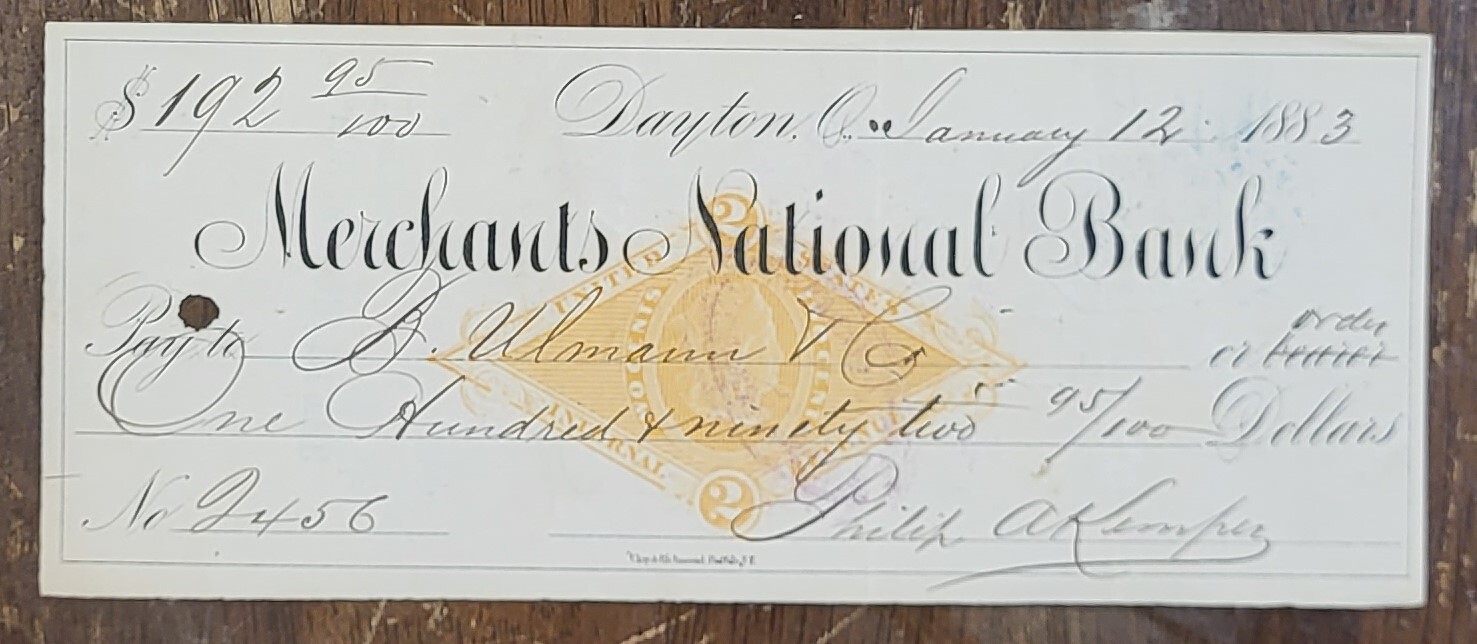 $192 95/100 Dayton, O. January 12 1883
Merchants National Bank
Pay to B. Ulmann & Co or bearer order
One Hundred & ninety two 95/100 Dollars
No 2456 Philip A Kemper
2
UNITED STATES
TWO CENTS
INTERNAL
2